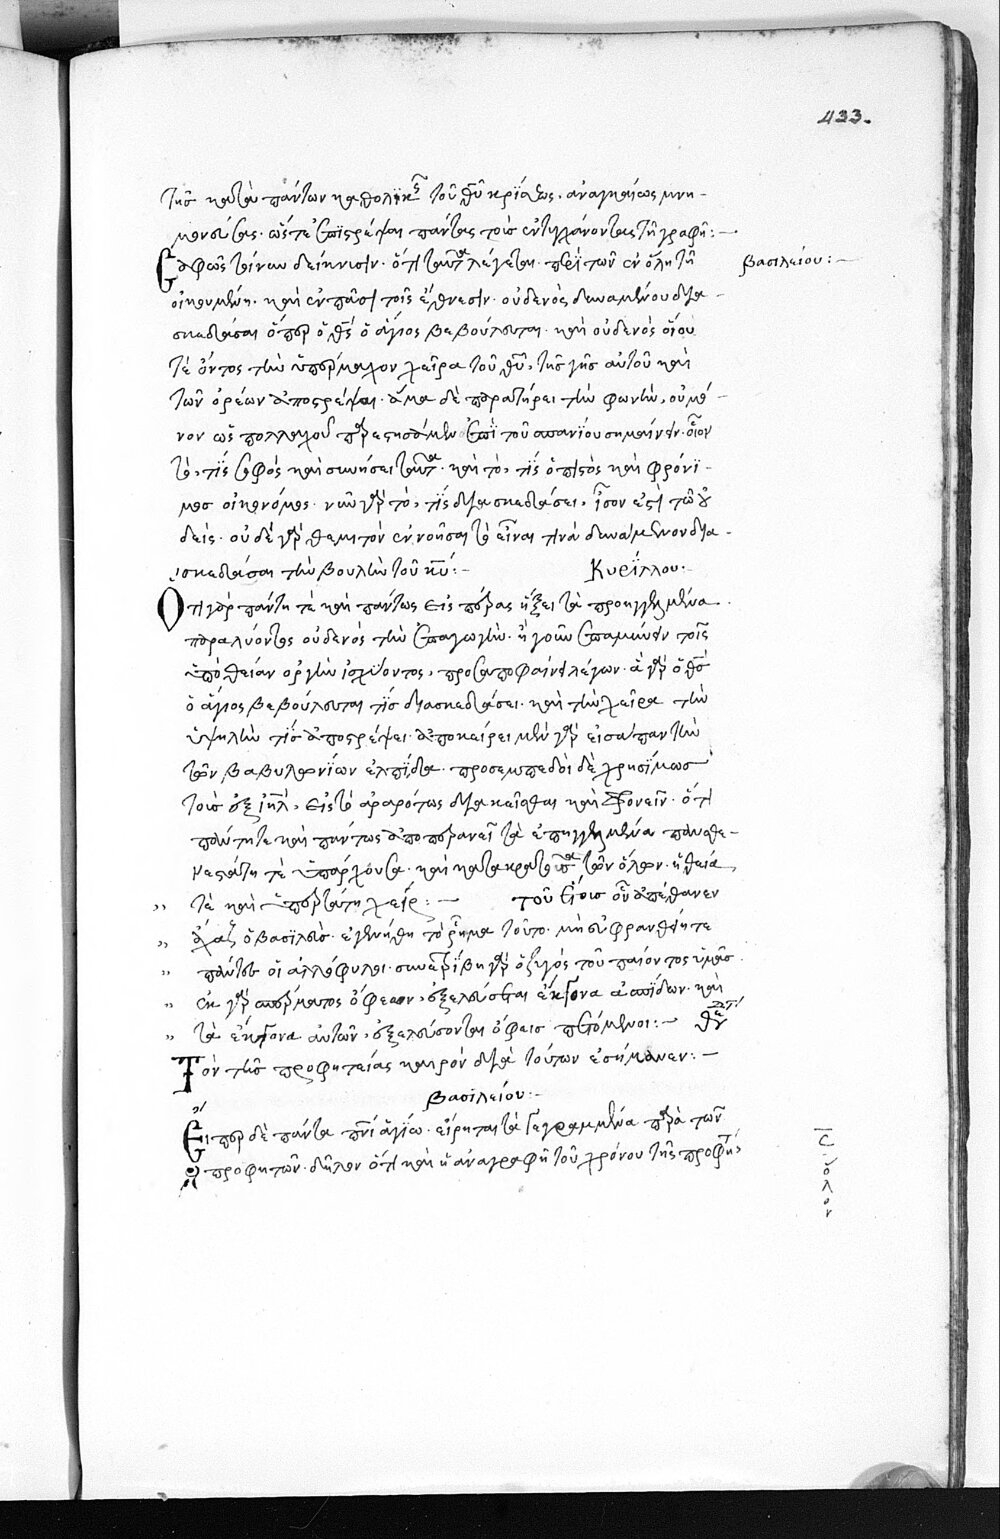 433.
τῆς κατὰ πάντων καθολικῆς τοῦ θυ κρίσεως. ἀναγκαίως μνη-
μονεύσας. ὥστε ἐπιστρέψαι πάντας τοὺς ἐντυγχάνοντας τῇ γραφῇ:-
Σαφῶς τοίνυν δείκνυσιν. ὅτι ταῦτα λέγεται περὶ τῶν ἐν ὅλῃ τῇ
βασιλείου:-
οἰκουμένη. καὶ ἐν πᾶσι τοῖς ἔθνεσιν. οὐδενὸς δυναμένου δια-
σκεδάσαι ὅπερ ὁ θς ὁ ἅγιος βεβούλευται. καὶ οὐδενὸς οἵου
τε ὄντος τὴν ὑπέρμαχον χεῖρα τοῦ θυ, τῆς γῆς αὐτοῦ καὶ
τῶν ὀρέων ἀποστρέψαι. ἅμα δὲ παρατήρει τὴν φωνὴν, οὐ μό-
νον ὡς πολλαχοῦ παρεστήσαμεν ἐπὶ τοῦ σπανίου σημαίνειν. οἷον
τὸ, τίς σοφὸς καὶ συνήσει ταῦτα. καὶ τὸ, τίς ὁ πιστὸς καὶ φρόνι-
μος οἰκονόμος. νῦν γὰρ τὸ, τίς διασκεδάσει, ἴσον ἐστὶ τῷ οὐ
δείς. οὐδὲ γὰρ θεμιτὸν ἐννοῆσαι τὸ εἶναι τινὰ δυνάμενον δια-
σκεδάσαι τὴν βουλὴν τοῦ κυ:-
Κυρίλλου.
Ὅτι γὰρ πάντη τὲ καὶ πάντως εἰς πέρας ἥξει τὰ προηγγελμένα
παραλύοντος οὐδενὸς τὴν ἐπαγωγὴν. ἢ γοῦν ἐπαμύνειν τοῖς
ὑπὸ θείαν ὀργὴν ἰσχύοντος, προσαποφαίνει λέγων. ἃ γὰρ ὁ θς
ὁ ἅγιος βεβούλευται τίς διασκεδάσει. καὶ τὴν χεῖρα τὴν
ὑψηλὴν τίς ἀποστρέψει. ἀποκείρει μὲν γὰρ εἰσάπαν τὴν
τῶν βαβυλωνίων ἐλπίδα. προσεμπεδοῖ δὲ χρησίμως
τοὺς ἐξ ιηλ, εἰς τὸ ἀραρότως διακεῖσθαι καὶ φρονεῖν. ὅτι
πάντῃ τε καὶ πάντως ἀποπερανεῖ τὰ ἐπηγγελμένα πανσθε-
νεστάτη τὲ ὑπάρχουσα. καὶ κατακρατοῦσα τῶν ὅλων. ἡ θεία
τὲ καὶ ὑπερτάτη χείρ:- τοῦ ἔτους οὗ ἀπέθανεν
ἄχαζ ὁ βασιλεὺς. ἐγενήθη τὸ ῥῆμα τοῦτο. μὴ εὐφρανθείητε
πάντες οἱ ἀλλόφυλοι. συνετρίβη γὰρ ὁ ζυγὸς τοῦ παίοντος ὑμᾶς.
ἐκ γὰρ σπέρματος ὄφεων. ἐξελεύσεται ἔκγονα ἀσπίδων. καὶ
τὰ ἔκγονα αὐτῶν, ἐξελεύσονται ὄφεις πετόμενοι:-
Τὸν τῆς προφητείας καιρὸν διὰ τούτων ἐσήμανεν:-
βασιλείου:-
Εἴπερ δὲ πάντα πνι ἁγίῳ. εἴρηται τὰ γεγραμμένα παρὰ τῶν
προφητῶν. δῆλον ὅτι καὶ ἡ ἀναγραφὴ τοῦ χρόνου τῆς προφη